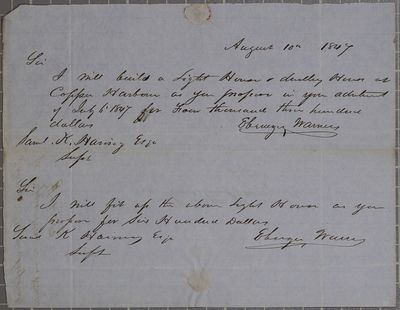 August 10th 1847
Sir
I will build a Light House & dwelling House at
Copper Harbour as you propose in your advertisement
of July 6th 1847 for Four thousand three hundred
dollars Ebenezer Warner
Saml K. Haring Esqr
Supt
Sir
I will fit up the above Light House as you
propose for Six Hundred Dollars
Saml K Haring Esqr Ebenezer Warner
Supt